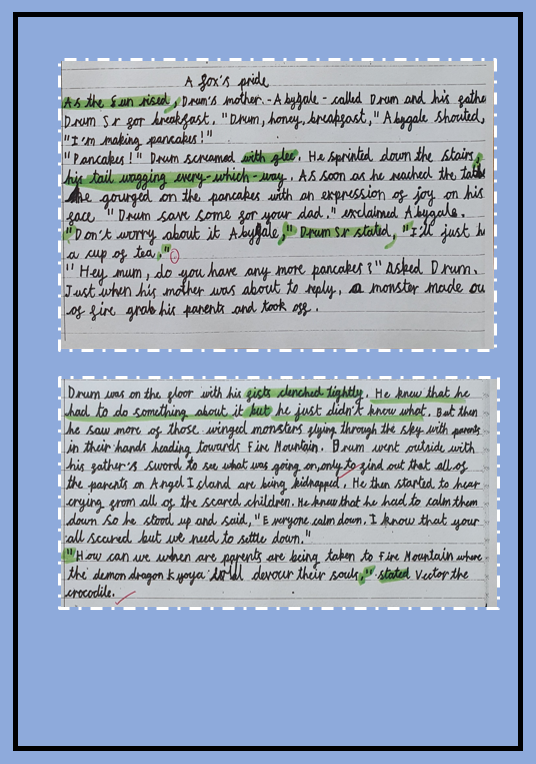 A fox's pride
As the sun rised, Drum's mother -Abygale- called Drum and his fathe
Drum Sr for breakfast. "Drum, honey, breakfast," Abygale shouted,
"I'm making pancakes!"
"Pancakes!" Drum screamed with glee. He sprinted down the stairs,
his tail wagging every-which-way. As soon as he reached the table
he gourged on the pancakes with an expression of joy on his
face. "Drum save some for your dad." exclaimed Abygale.
"Don't worry about it Abygale," Drum Sr stated, "I'll just h
a cup of tea."
"Hey mum, do you have any more pancakes?" Asked Drum.
Just when his mother was about to reply, a monster made ou
of fire grab his parents and took off.
Drum was on the floor with his fists clenched tightly. He knew that he
had to do something about it but he just didn't know what. But then
he saw more of those winged monsters flying through the sky with parents
in their hands heading towards Fire Mountain. Drum went outside with
his father's sword to see what was going on, only to find out that all of
the parents on Angel Island are being kidnapped. He then started to hear
crying from all of the scared children. He knew that he had to calm them
down so he stood up and said, "Everyone calm down. I know that your
all scured but we need to settle down."
"How can we when are parents are being taken to Fire Mountain where
the demon dragon kyoya will devour their souls," stated Vector the
crocodile.